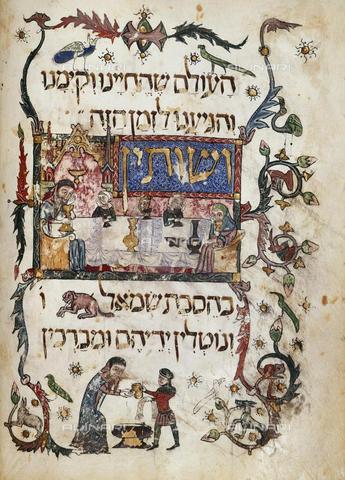 העולם שהחיינו וקימנו
והגיענו לזמן הזה
ושותין
בהסבת שמאל ו
ונוטלין ידיהם ומברכין
ALINARI
ALINARI